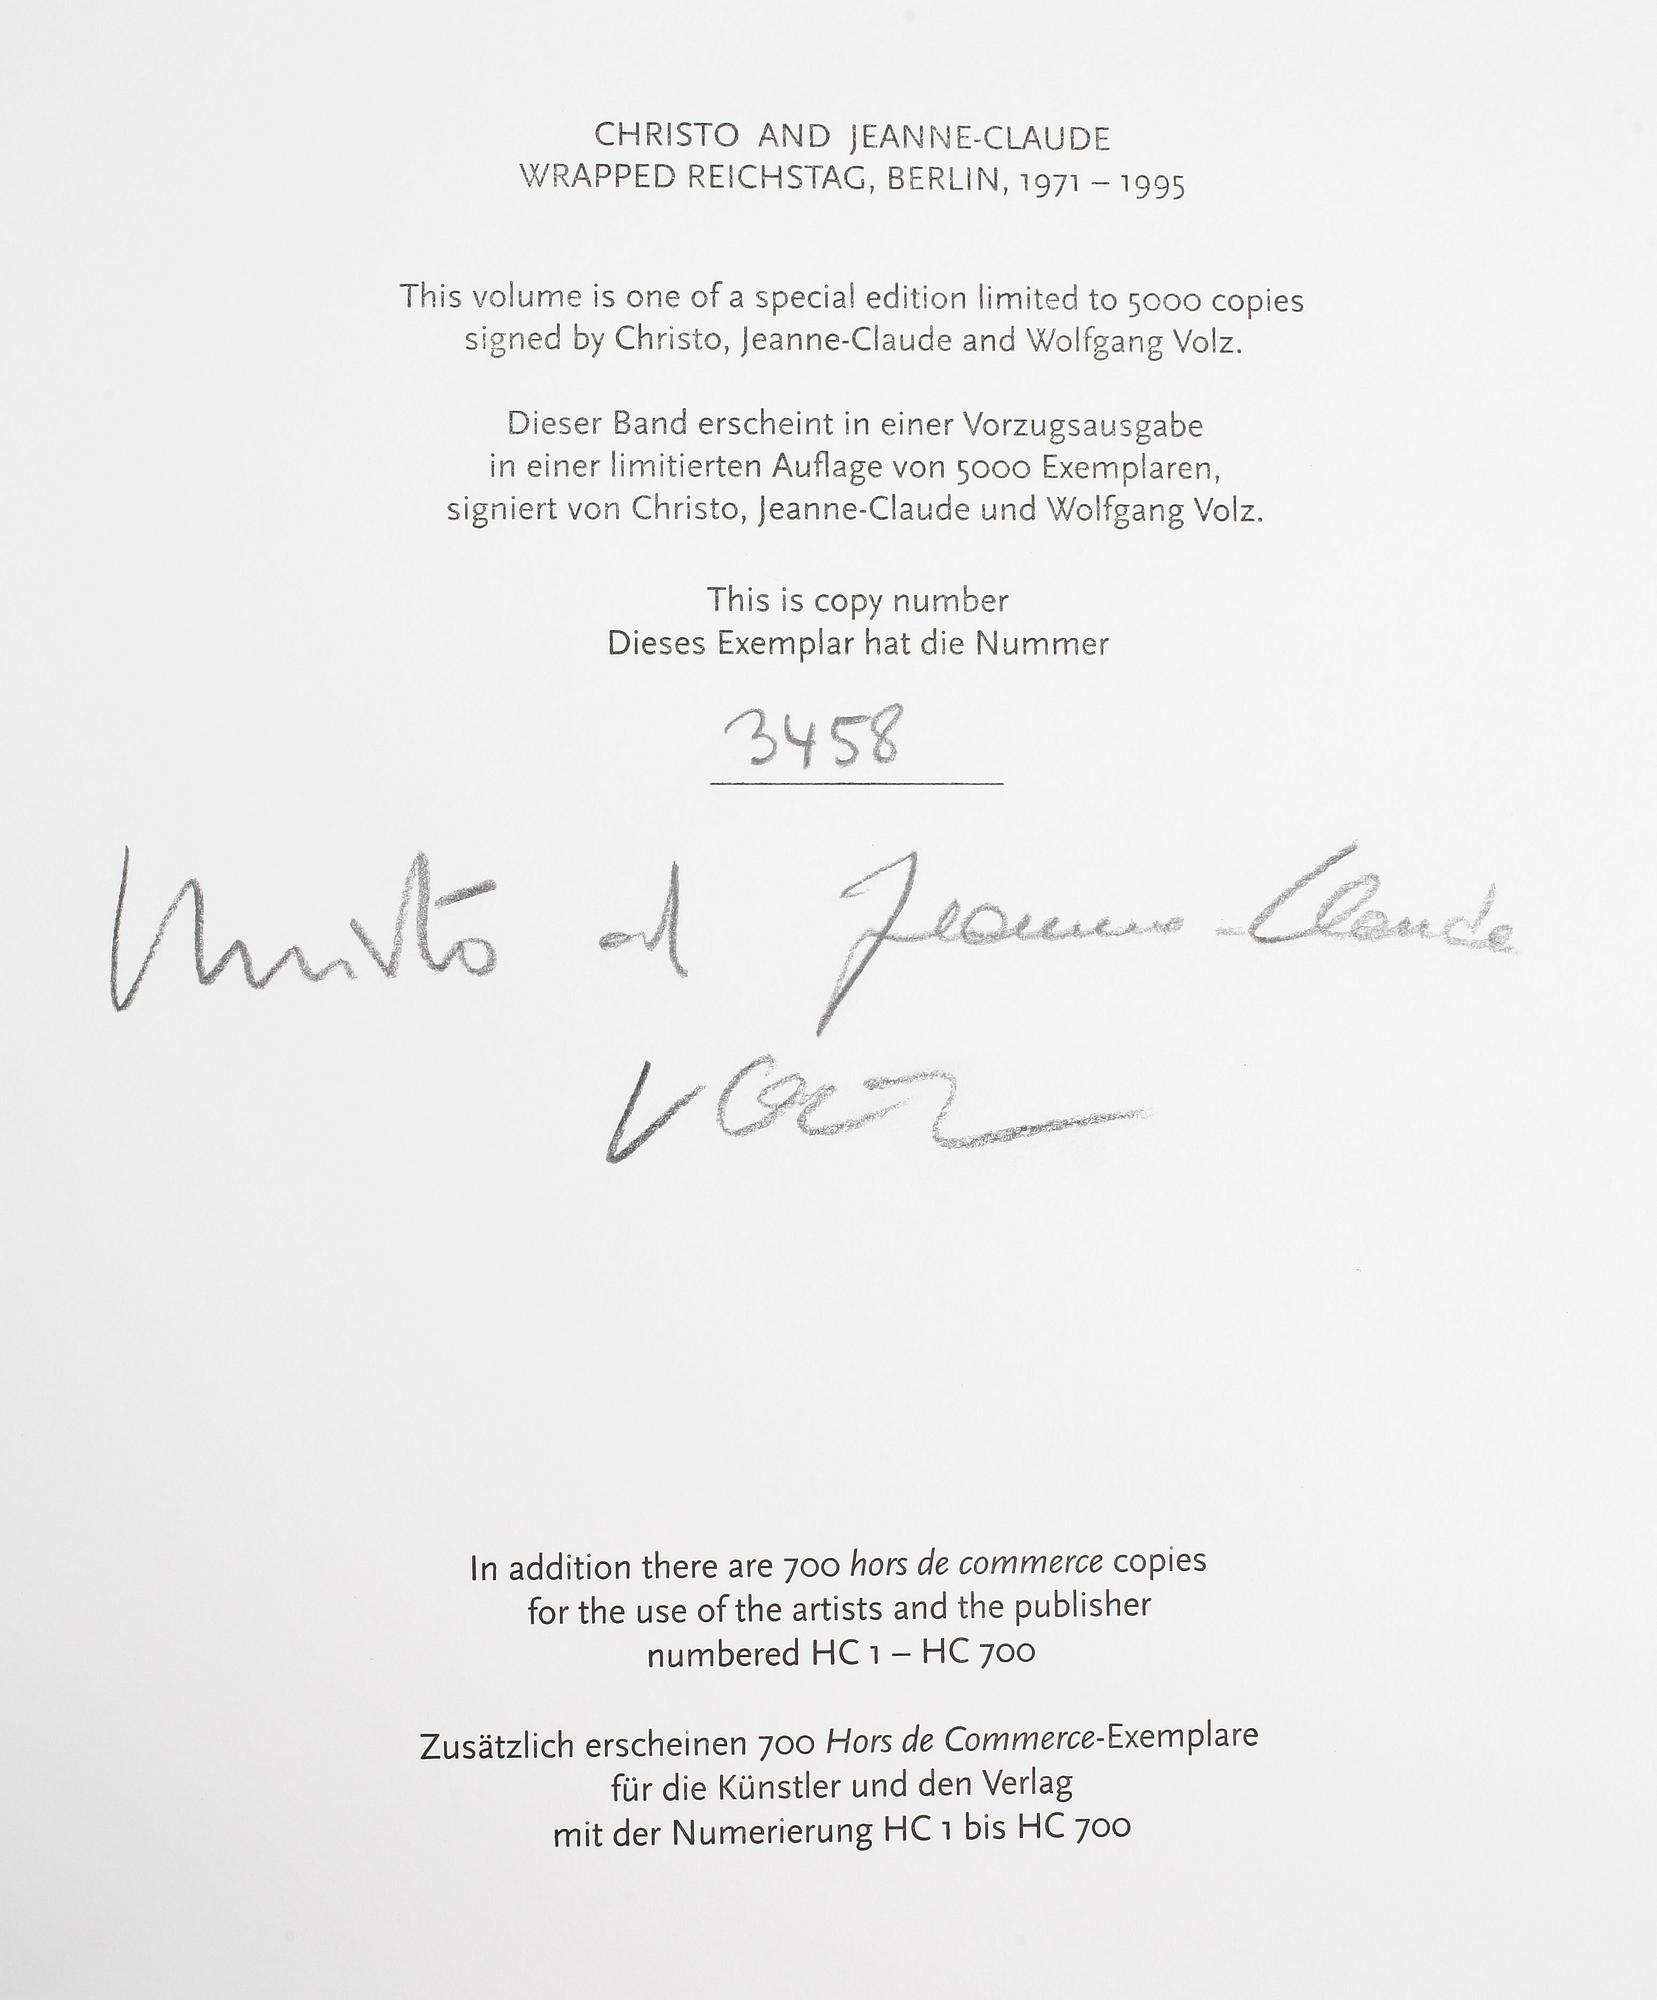 CHRISTO AND JEANNE-CLAUDE
WRAPPED REICHSTAG, BERLIN, 1971 – 1995
This volume is one of a special edition limited to 5000 copies
signed by Christo, Jeanne-Claude and Wolfgang Volz.
Dieser Band erscheint in einer Vorzugsausgabe
in einer limitierten Auflage von 5000 Exemplaren,
signiert von Christo, Jeanne-Claude und Wolfgang Volz.
This is copy number
Dieses Exemplar hat die Nummer
3458
Christo and Jeanne-Claude
Volz
In addition there are 700 hors de commerce copies
for the use of the artists and the publisher
numbered HC 1 – HC 700
Zusätzlich erscheinen 700 Hors de Commerce-Exemplare
für die Künstler und den Verlag
mit der Numerierung HC 1 bis HC 700